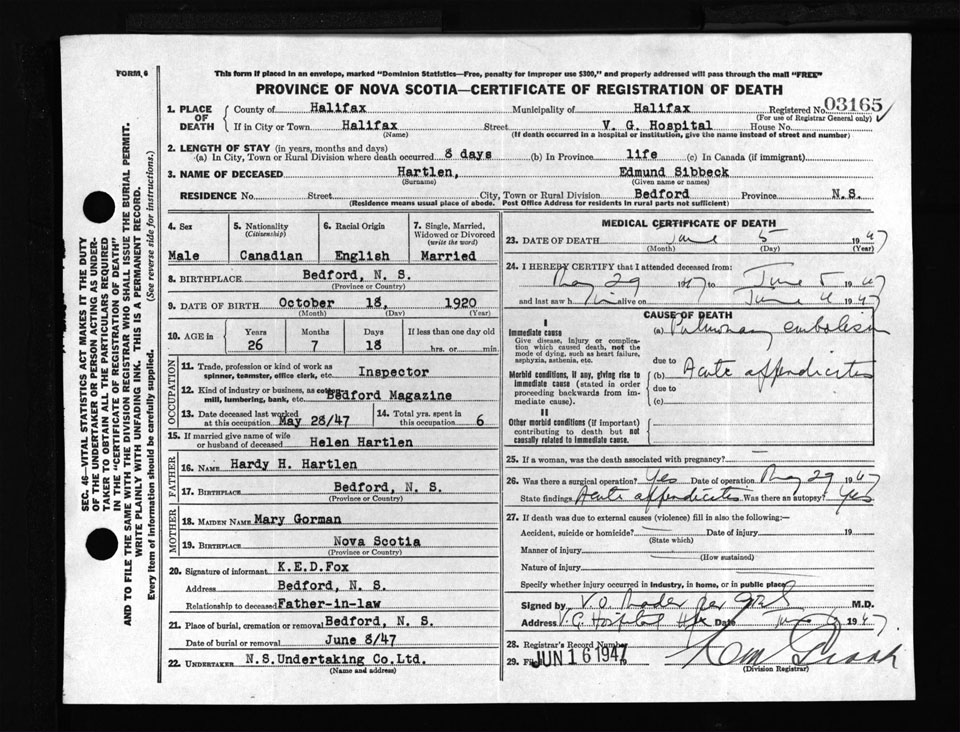 FORM 6
This form if placed in an envelope, marked "Dominion Statistics—Free, penalty for improper use $300," and properly addressed will pass through the mail "FREE"
PROVINCE OF NOVA SCOTIA—CERTIFICATE OF REGISTRATION OF DEATH
1. PLACE OF DEATH
County of Halifax Municipality of Halifax Registered No. 03165
(For use of Registrar General only)
If in City or Town Halifax Street V. G. Hospital House No.
(Name) (If death occurred in a hospital or institution, give the name instead of street and number)
2. LENGTH OF STAY (in years, months and days)
(a) In City, Town or Rural Division where death occurred 8 days (b) In Province life (c) In Canada (if immigrant)
3. NAME OF DECEASED Hartlen, Edmund Sibbeck
(Surname) (Given name or names)
RESIDENCE No. Street City, Town or Rural Division Bedford Province N.S.
(Residence means usual place of abode. Post Office Address for residents in rural parts not sufficient)
4. Sex
Male
5. Nationality
(Citizenship)
Canadian
6. Racial Origin
English
7. Single, Married, Widowed or Divorced
(write the word)
Married
8. BIRTHPLACE Bedford, N. S.
(Province or Country)
9. DATE OF BIRTH October 18, 1920
(Month) (Day) (Year)
10. AGE in
Years Months Days If less than one day old
26 7 18 hrs. or min.
OCCUPATION
11. Trade, profession or kind of work as
spinner, teamster, office clerk, etc. Inspector
12. Kind of industry or business, as cotton-
mill, lumbering, bank, etc. Bedford Magazine
13. Date deceased last worked
at this occupation May 28/47
14. Total yrs. spent in
this occupation 6
15. If married give name of wife
or husband of deceased Helen Hartlen
FATHER
16. NAME Hardy H. Hartlen
17. BIRTHPLACE Bedford, N. S.
(Province or Country)
MOTHER
18. MAIDEN NAME Mary Gorman
19. BIRTHPLACE Nova Scotia
(Province or Country)
20. Signature of informant K.E.D.Fox
Address Bedford, N. S.
Relationship to deceased Father-in-law
21. Place of burial, cremation or removal Bedford, N. S.
Date of burial or removal June 8/47
22. UNDERTAKER N.S.Undertaking Co.Ltd.
(Name and address)
MEDICAL CERTIFICATE OF DEATH
23. DATE OF DEATH June 5 1947
(Month) (Day)
24. I HEREBY CERTIFY that I attended deceased from:
May 29 1947 to June 5 1947
and last saw him alive on June 4 1947
CAUSE OF DEATH
I
Immediate cause
Give disease, injury or complication which caused death, not the mode of dying, such as heart failure, asphyxia, asthenia, etc.
(a) Pulmonary embolism
due to
Morbid conditions, if any, giving rise to immediate cause (stated in order proceeding backwards from immediate cause).
(b) Acute appendicitis
due to
(c)
II
Other morbid conditions (if important) contributing to death but not causally related to immediate cause.
25. If a woman, was the death associated with pregnancy?
26. Was there a surgical operation? Yes Date of operation May 29 1947
State findings Acute appendicitis Was there an autopsy? Yes
27. If death was due to external causes (violence) fill in also the following:—
Accident, suicide or homicide? Date of injury 19
(State which)
Manner of injury
(How sustained)
Nature of injury
Specify whether injury occurred in industry, in home, or in public place
Signed by M.D.
Address V.G. Hospital Hfx Date 1947
28. Registrar's Record Number
29. JUN 16 1947
(Division Registrar)
SEC. 46—VITAL STATISTICS ACT MAKES IT THE DUTY
OF THE UNDERTAKER OR PERSON ACTING AS UNDER-
TAKER TO OBTAIN ALL THE PARTICULARS REQUIRED
IN THE "CERTIFICATE OF REGISTRATION OF DEATH"
AND TO FILE THE SAME WITH THE DIVISION REGISTRAR WHO SHALL ISSUE THE BURIAL PERMIT.
WRITE PLAINLY WITH UNFADING INK. THIS IS A PERMANENT RECORD.
Every item of information should be carefully supplied. (See reverse side for instructions.)